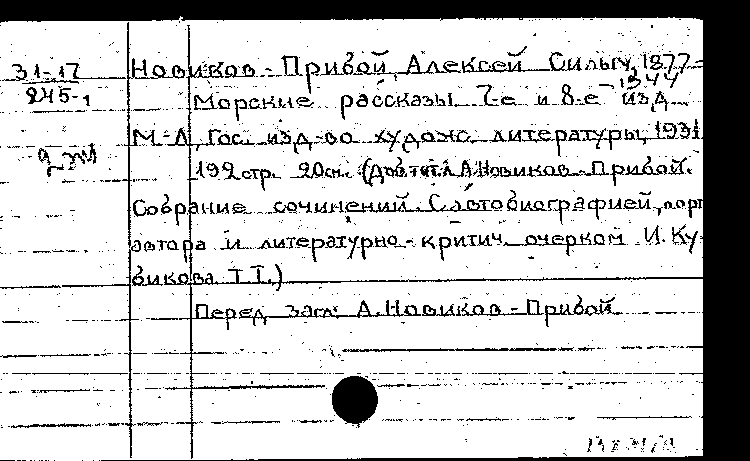 31-17
245-1
Новиков-Прибой, Алексей Силыч, 1877-
1944
Морские рассказы. 7-е и 8-е изд.
М.-Л., Гос. изд-во художс. литературы, 1931
192 стр. 20 см. (Доб. тит. л. А. Новиков-Прибой.
Собрание сочинений. С автобиографией, порт
автора и литературно-критич. очерком И. Ку-
бикова. Т. I.)
Перед загл: А. Новиков-Прибой.